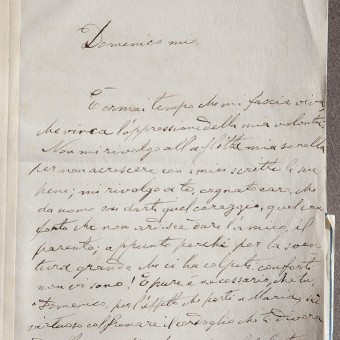 Domenico mio,
È ormai tempo che mi faccia viva
che vinca l'oppressione della mia volontà.
Non mi rivolgo all'afflitta mia sorella
per non accrescere con i miei scritti le sue
pene; mi rivolgo a te, cognato caro, che
da uomo sai darti quel coraggio, quel con-
forto che non ardisce dare l'amico, il
parente; appunto perchè per la sven-
tura grande che ci ha colpito, conforti
non vi sono! Eppure è necessario, che tu,
Domenico, per l'affetto che porti a Maria, sii
virtuoso col frenare il cordoglio che ti divora